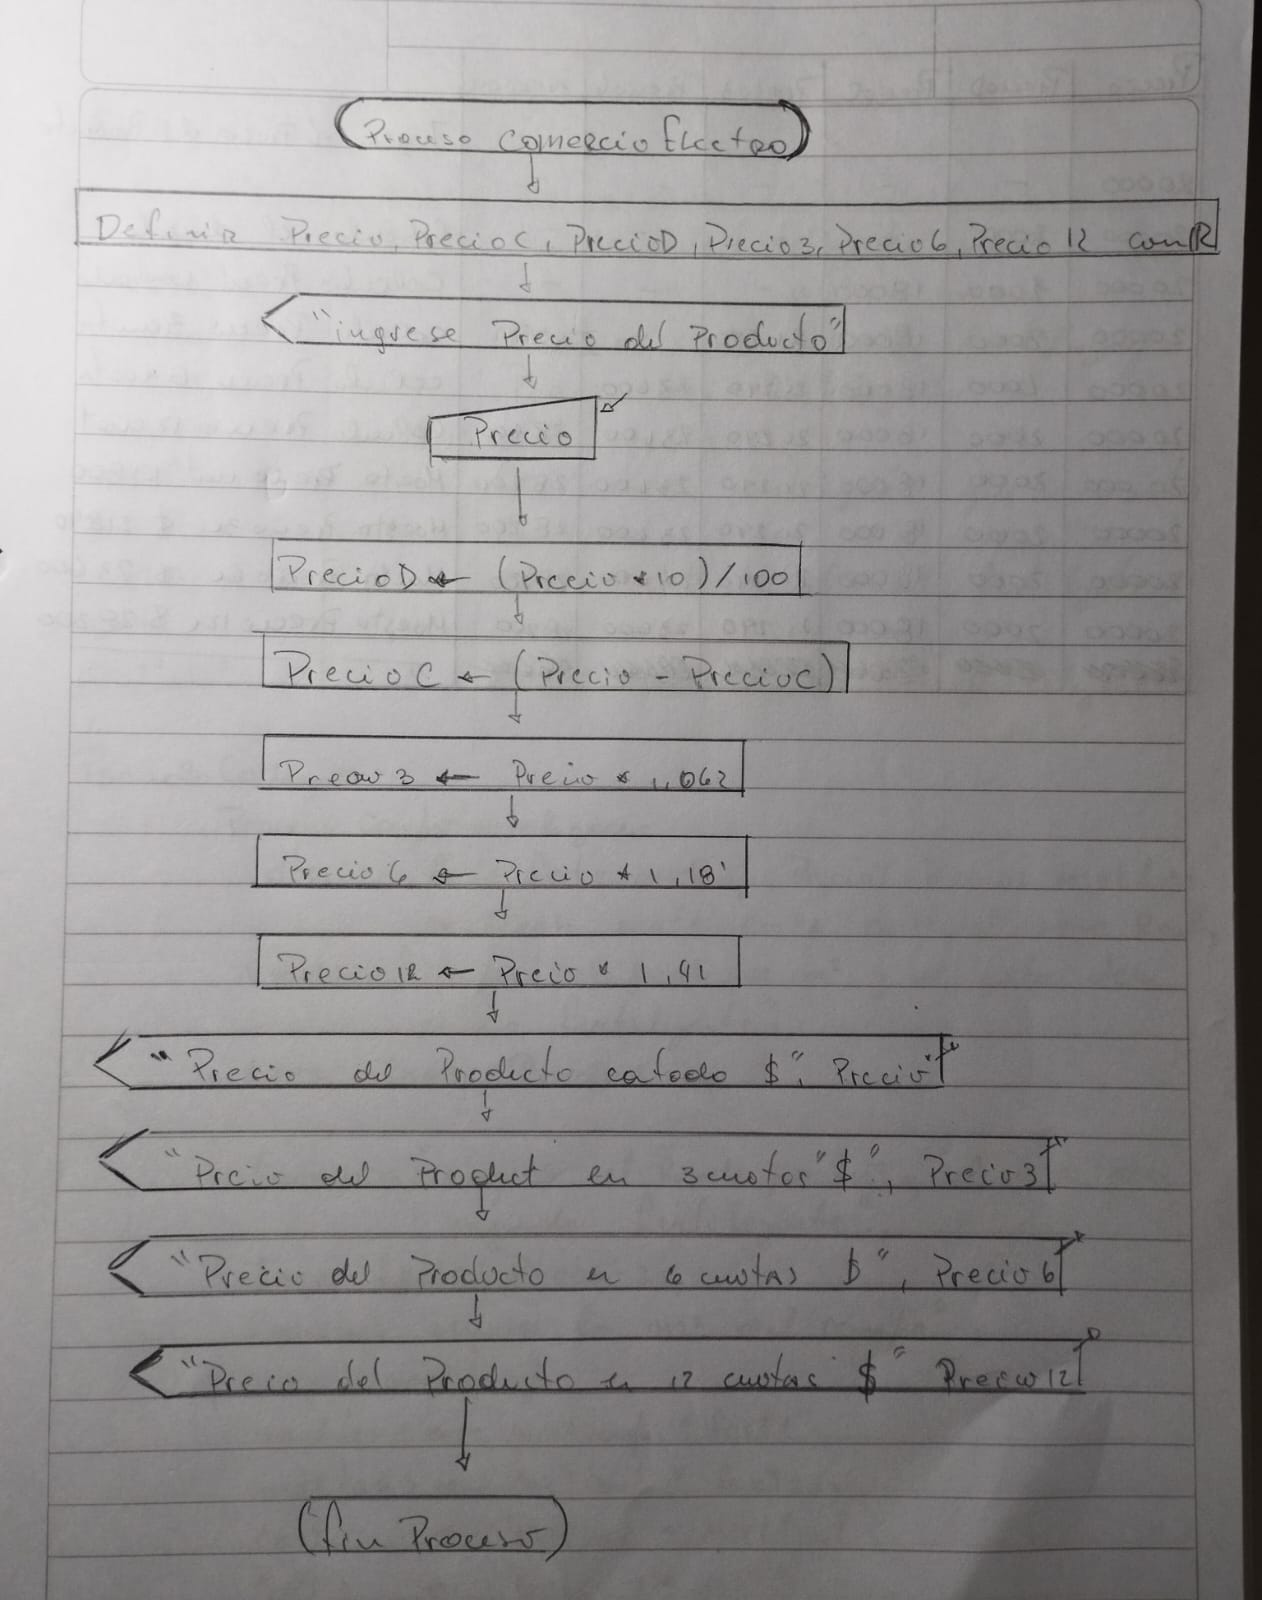 Proceso Comercio Electro
Definir Precio, PrecioC, PrecioD, Precio3, Precio6, Precio12 com R
"ingrese Precio del Producto"
Precio
PrecioD ← (Precio * 10) / 100
PrecioC ← (Precio - PrecioC)
Precio 3 ← Precio * 1,062
Precio 6 ← Precio * 1,18
Precio 12 ← Precio * 1,41
"Precio del Producto $", Precio"
"Precio del Product en 3 cuotas "$", Precio3
"Precio del Producto en 6 cuotas $", Precio6
"Precio del Producto en 12 cuotas $" Precio12
fin Proceso